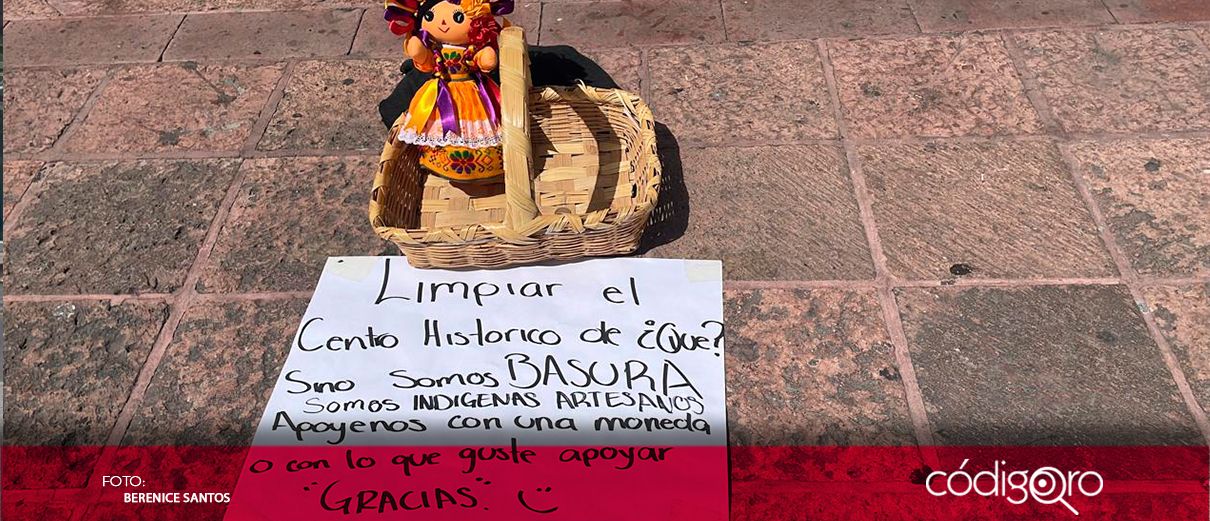 Limpiar el
Cento Historico de ¿Que?
Sino Somos BASURA
Somos INDIGENAS ARTESANOS
Apoyenos con una moneda
o con lo que guste apoyar
"GRACIAS".
FOTO:
BERENICE SANTOS
códigoqro